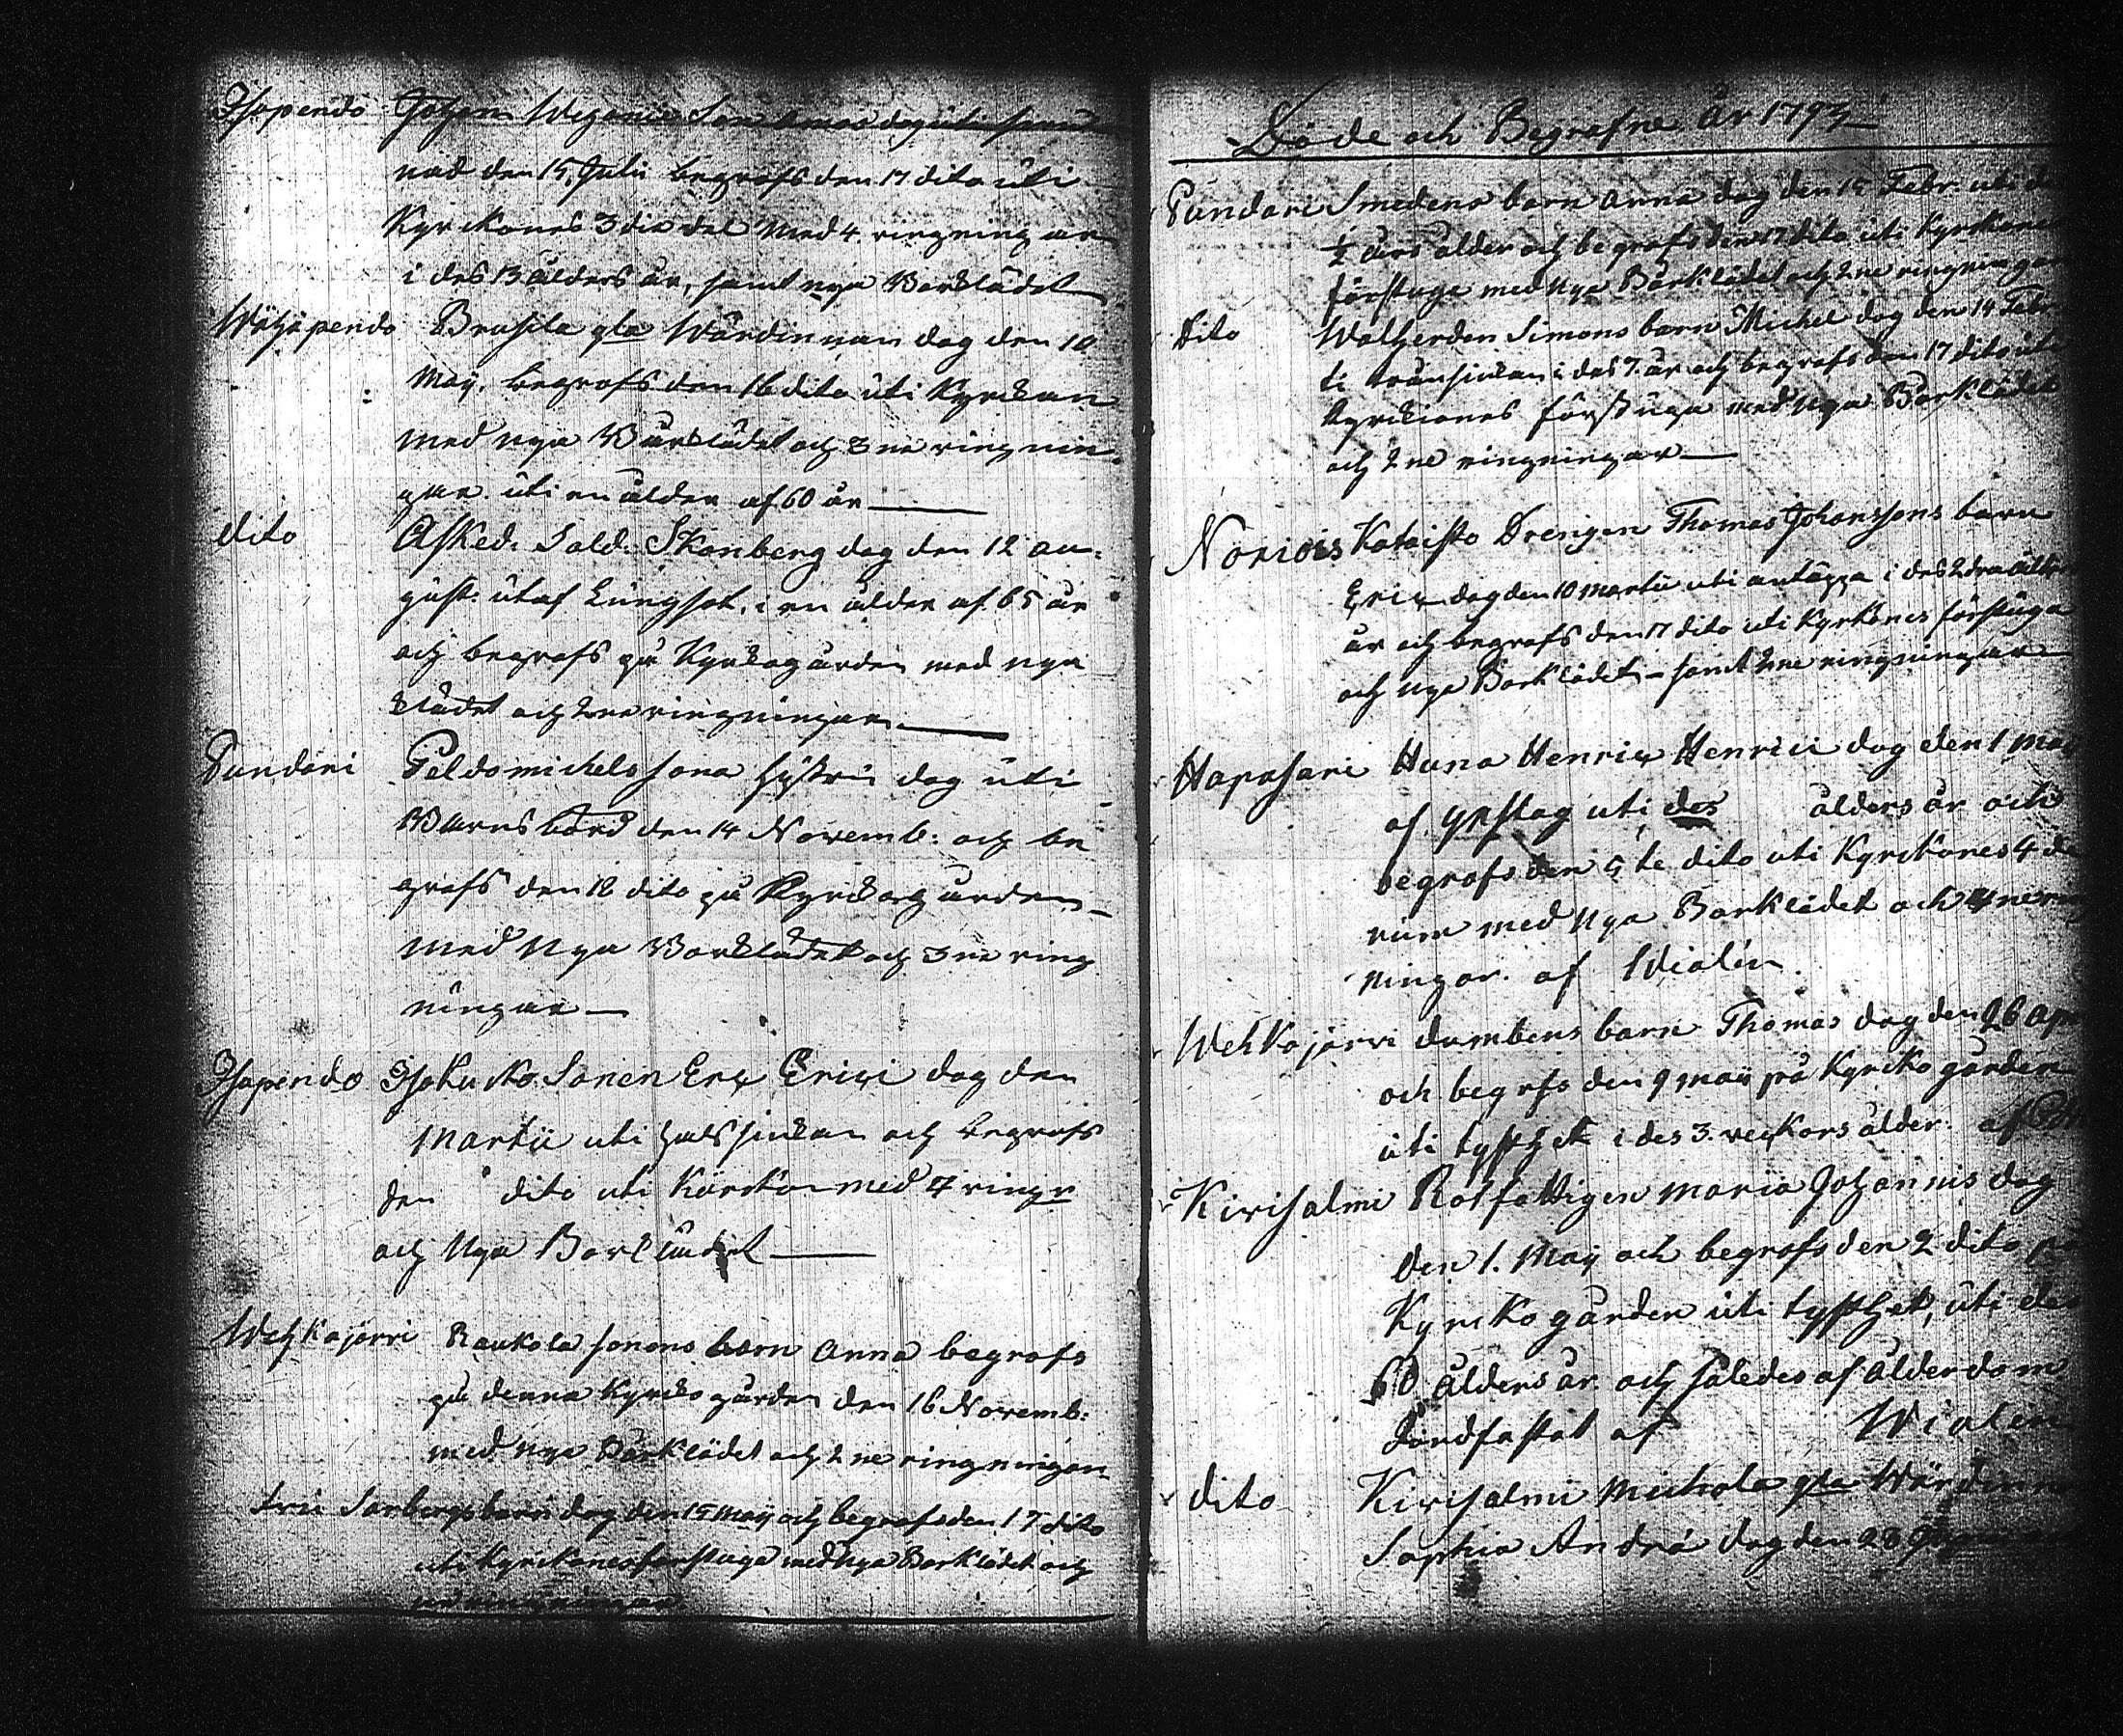 Isopendo
nad den 15 Julii begrofs den 17 dito uti
Kyrckones 3die del med 4 ringningar
i des 13 ålders år, samt nya Barklädet
Wähäpendo Brusila gla Wärdinnan dog den 10
May, begrofs den 16 dito uti Kyrckan
med nya Barklädet och 3ne ringnin
gar uti en ålder af 60 år
dito Afsked: Sold: Skonberg dog den 12 au:
gust: utaf Lungsot, i en ålder af 65 år
och begrofs på Kyrckogården med nya
klädet och 2ne ringningar
Pundari Peldomichels sona hustru dog uti
Barns börd den 14 Novemb: och be
grofs den 18 dito på Kyrckogården
med Nya Barklädet och 3ne ring
ningar
Isopendo Sonen Erix Erici dog den
Martii uti halssiukan och begrofs
den dito uti Körckan med 4 ringr
och Nya Barklädet
Wehkajärvi Raukola sonens barn Anna begrofs
på denna Kyrckogården den 16 Novemb:
med nya Barklädet och 2ne ringningar
dog den 15 Maij och begrofs den 17 dito
uti Kyrckones forstuga med Nya Barklädet och
Döde och Begrafne År 1793
Pundari Smedens barn Anna dog den 15 Febr. uti
1/2 års ålder och begrofs den 17 dito uti Kyrckones
förstuga med Nya Barklädet och 2ne ringningar
Dito Simons barn Michel dog den 14 Febr
i des 7. år och begrofs den 17 dito uti
Kyrckiones förstuga med Nya Barklädet
och 2ne ringningar
Noricis Kataisto Drengen Thomas Johanssons barn
Erix dog den 10 Martii uti i des 2dra ålders
år och begrofs den 17 dito uti Kyrkones förstuga
och nya Barklädet samt 2ne ringningar
Hapasari Huna Henrix Henrici dog den 1 May
af uti des ålders år och
begrofs den 5te dito uti Kyrckones 4de
rum med Nya Barklädet och 4ne
ningar. af Wialén.
Wehkajärvi dumbens barn Thomas dog den 26 Apr
och begrfs den 9 maij på Kyrckogården
uti tysthet i des 3. veckors ålder. af
Kirisalmi Rotfattigen Maria Johannis dog
den 1. May och begrofs den 2 dito på
Kyrckogården uti tysthet, uti des
60 ålders år och således af ålderdom
Jordfästat af Wialen
dito Kirisalmi Michola gla Wärdinna
Sophia Andrä dog den 28